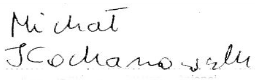 Michał
Kochanowski